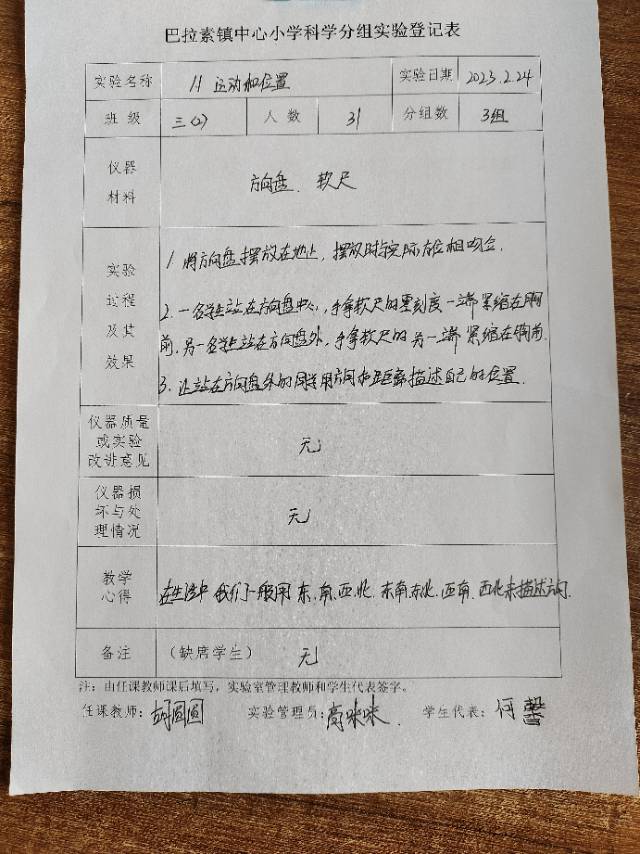 巴拉素镇中心小学科学分组实验登记表
实验名称 11 运动和位置 实验日期 2023.2.24
班级 三(2) 人数 31 分组数 3组
仪器
材料
方向盘、软尺
实验
过程
及其
效果
1 将方向盘摆放在地上，摆放时与实际方位相吻合.
2.一名学生站在方向盘中心，手拿软尺的零刻度一端紧缩在胸
前,另一名学生站在方向盘外，手拿软尺的另一端紧缩在胸前.
3、让站在方向盘外的同学用方向和距离描述自己的位置.
仪器质量
或实验
改进意见
无
仪器损
坏与处
理情况
无
教学
心得
在生活中我们一般用东、南、西、北、东南、东北、西南、西北来描述方向.
备注 (缺席学生) 无
注：由任课教师课后填写，实验室管理教师和学生代表签字。
任课教师：胡圆圆 实验管理员：高咪咪. 学生代表：何馨